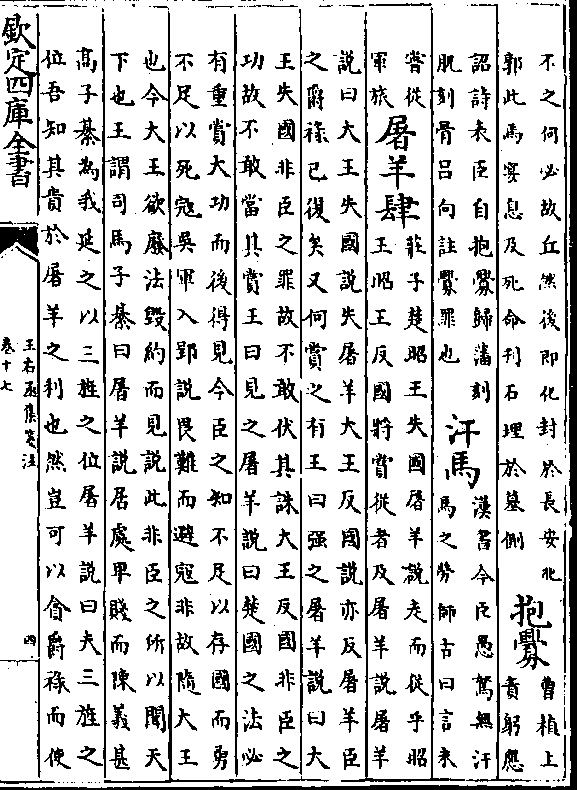 不之何必故丘然後即化封於長安北
郭此馬宴息及死命刊石埋於墓側
抱釁
曹植上
責躬應
詔詩表臣自抱釁歸藩刻
肌刻骨呂向註釁罪也
汗馬
漢書今臣愚駑無汗
馬之勞師古曰言未
嘗從
軍旅
屠羊肆
莊子楚昭王失國屠羊說走而從乎昭
王昭王反國將賞從者及屠羊說屠羊
說曰大王失國說失屠羊大王反國說亦反屠羊臣
之爵祿已復矣又何賞之有王曰强之屠羊說曰大
王失國非臣之罪故不敢伏其誅大王反國非臣之
功故不敢當其賞王曰見之屠羊說曰楚國之法必
有重賞大功而後得見今臣之知不足以存國而勇
不足以死寇吳軍入郢說畏難而避寇非故隨大王
也今大王欲廢法毀約而見說此非臣之所以聞天
下也王謂司馬子綦曰屠羊說居處卑賤而陳義甚
高子綦為我延之以三旌之位屠羊說曰夫三旌之
位吾知其貴於屠羊之利也然豈可以貪爵祿而使
欽定四庫全書
王右丞集箋注
卷十七
四